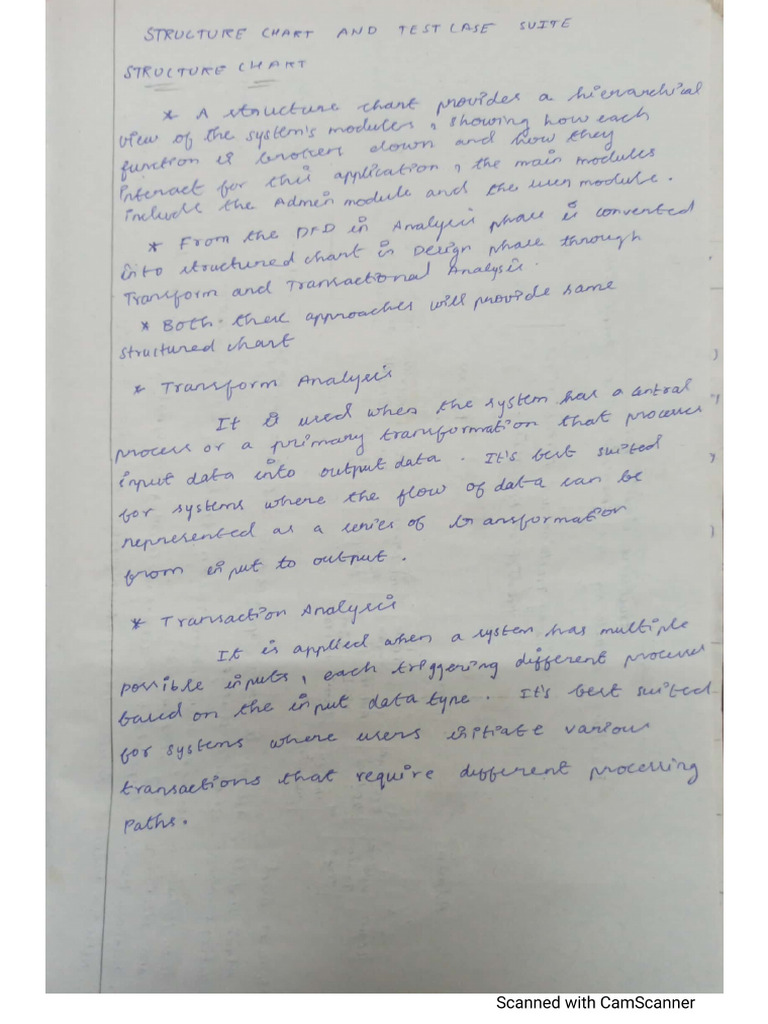 STRUCTURE CHART AND TEST CASE SUITE
STRUCTURE CHART
* A structure chart provides a hierarchical
view of the system's modules, showing how each
function is broken down and how they
interact for this application, the main modules
include the Admin module and the user module.
* From the DFD in Analysis phase is converted
into structured chart in Design phase through
Transform and Transactional Analysis.
* Both these approaches will provide same
structured chart
* Transform Analysis
It is used when the system has a central
process or a primary transformation that processes
input data into output data. It's best suited
for systems where the flow of data can be
represented as a series of transformation
from input to output.
* Transaction Analysis
It is applied when a system has multiple
possible inputs, each triggering different processes
based on the input data type. It's best suited
for systems where users initiate various
transactions that require different processing
Paths.
Scanned with CamScanner